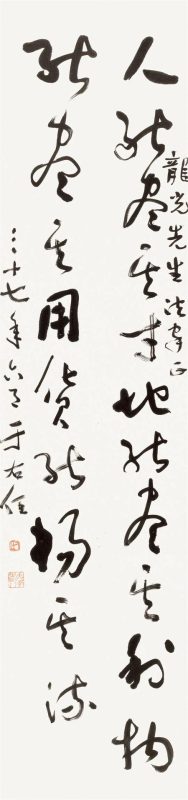 龍光先生法家正
人能盡其才地能盡其利物
能盡其用貨能暢其流
三十七年六月 于右任